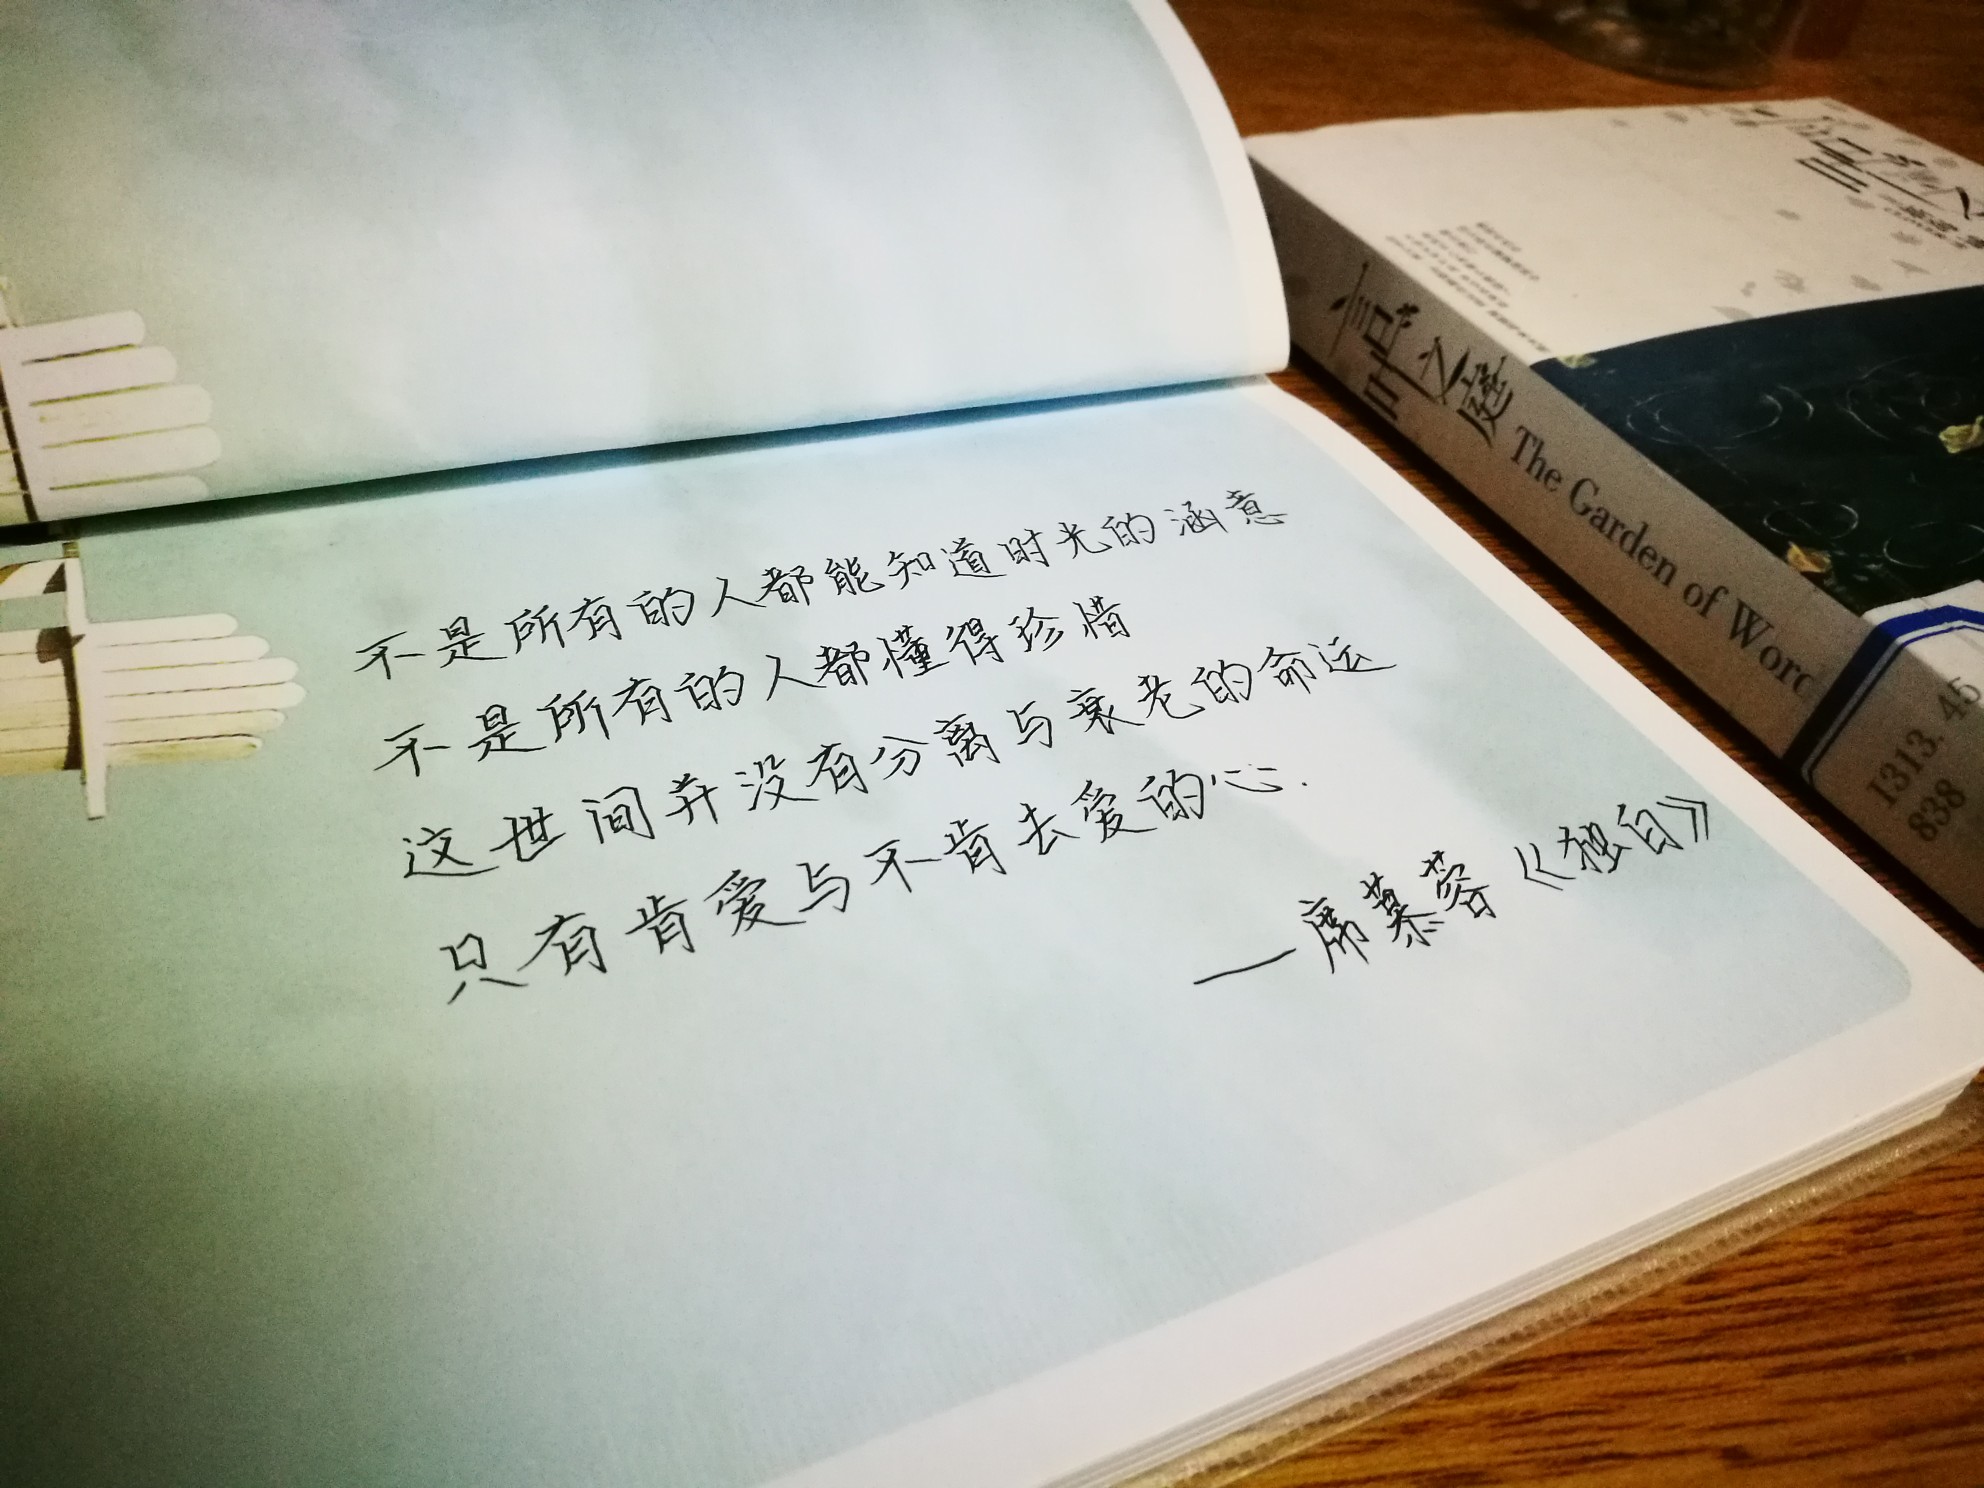 不是所有的人都能知道时光的涵意
不是所有的人都懂得珍惜
这世间并没有分离与衰老的命运
只有肯爱与不肯去爱的心.
—席慕蓉《独白》
言の之庭 The Garden of Word
I313.45
838